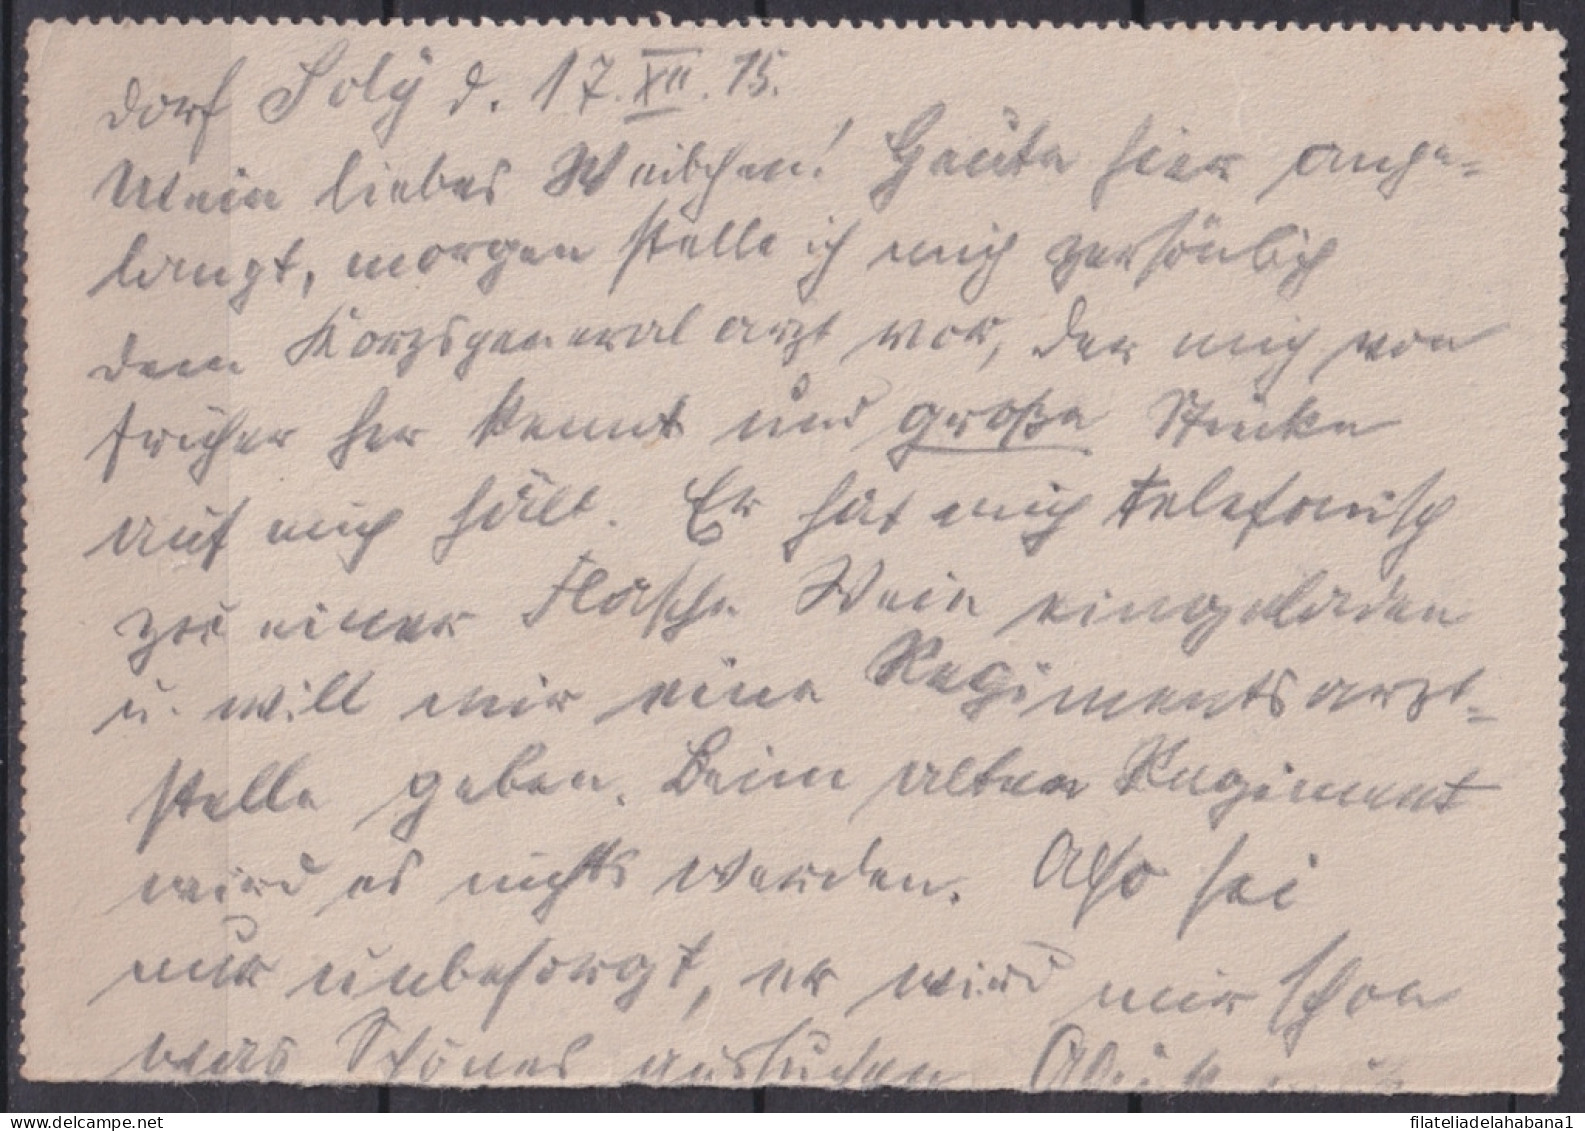 Dorf Soly d. 17.XII.15.
Mein liebes Weibchen! Heute hier ange=
langt, morgen stelle ich mich persönlich
dem Korpsgeneralarzt vor, der mich von
früher her kennt und große Stücke
auf mich hält. Er hat mich telefonisch
zu einer Flasche Wein eingeladen
u. will mir eine Regimentsarzt=
stelle geben. Beim alten Regiment
wird es nichts werden. Also sei
nur unbesorgt, er wird mir schon
was Schönes aussuchen
filateliadelahabana1